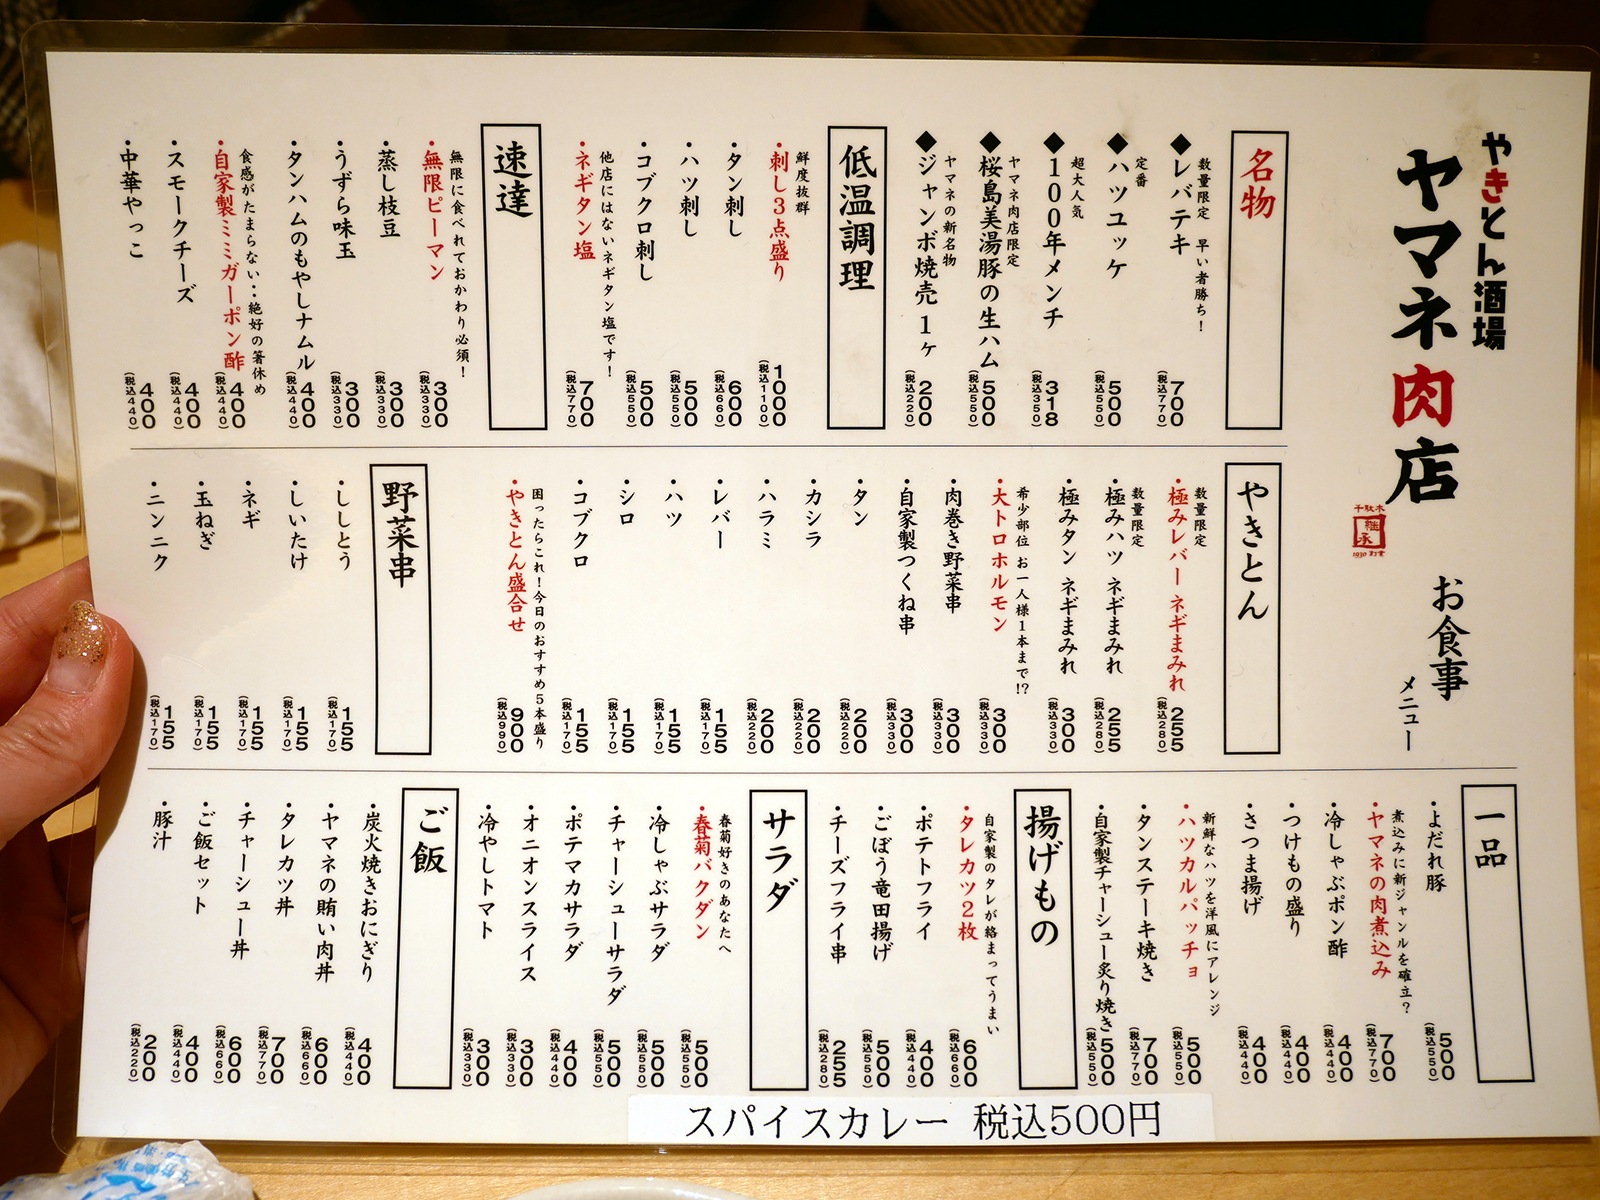 やきとん酒場
ヤマネ肉店
千駄木
継承
1930 創業
お食事
メニュー
名物
数量限定 早い者勝ち!
◆レバテキ 700 (税込770)
定番
◆ハツユッケ 500 (税込550)
超大人気
◆100年メンチ 318 (税込350)
ヤマネ肉店限定
◆桜島美湯豚の生ハム 500 (税込550)
ヤマネの新名物
◆ジャンボ焼売1ヶ 200 (税込220)
低温調理
鮮度抜群
・刺し3点盛り 1000 (税込1100)
・タン刺し 600 (税込660)
・ハツ刺し 500 (税込550)
・コブクロ刺し 500 (税込550)
他店にはないネギタン塩です!
・ネギタン塩 700 (税込770)
速達
無限に食べれておかわり必須!
・無限ピーマン 300 (税込330)
・蒸し枝豆 300 (税込330)
・うずら味玉 300 (税込330)
・タンハムのもやしナムル 400 (税込440)
食感がたまらない‥絶好の箸休め
・自家製ミミガーポン酢 400 (税込440)
・スモークチーズ 400 (税込440)
・中華やっこ 400 (税込440)
やきとん
数量限定
・極みレバー ネギまみれ 255 (税込280)
数量限定
・極みハツ ネギまみれ 255 (税込280)
・極みタン ネギまみれ 300 (税込330)
希少部位 お一人様1本まで!?
・大トロホルモン 300 (税込330)
・肉巻き野菜串 300 (税込330)
・自家製つくね串 300 (税込330)
・タン 200 (税込220)
・カシラ 200 (税込220)
・ハラミ 200 (税込220)
・レバー 155 (税込170)
・ハツ 155 (税込170)
・シロ 155 (税込170)
・コブクロ 155 (税込170)
困ったらこれ!今日のおすすめ5本盛り
・やきとん盛合せ 900 (税込990)
野菜串
・ししとう 155 (税込170)
・しいたけ 155 (税込170)
・ネギ 155 (税込170)
・玉ねぎ 155 (税込170)
・ニンニク 155 (税込170)
一品
・よだれ豚 500 (税込550)
煮込みに新ジャンルを確立?
・ヤマネの肉煮込み 700 (税込770)
・冷しゃぶポン酢 400 (税込440)
・つけもの盛り 400 (税込440)
・さつま揚げ 400 (税込440)
新鮮なハツを洋風にアレンジ
・ハツカルパッチョ 500 (税込550)
・タンステーキ焼き 700 (税込770)
・自家製チャーシュー炙り焼き 500 (税込550)
揚げもの
自家製のタレが絡まってうまい
・タレカツ2枚 600 (税込660)
・ポテトフライ 400 (税込440)
・ごぼう竜田揚げ 500 (税込550)
・チーズフライ串 255 (税込280)
サラダ
春菊好きのあなたへ
・春菊バクダン 500 (税込550)
・冷しゃぶサラダ 500 (税込550)
・チャーシューサラダ 500 (税込550)
・ポテマカサラダ 400 (税込440)
・オニオンスライス 300 (税込330)
・冷やしトマト 300 (税込330)
ご飯
・炭火焼きおにぎり 400 (税込440)
・ヤマネの賄い肉丼 600 (税込660)
・タレカツ丼 700 (税込770)
・チャーシュー丼 600 (税込660)
・ご飯セット 400 (税込440)
・豚汁 200 (税込220)
スパイスカレー 税込500円